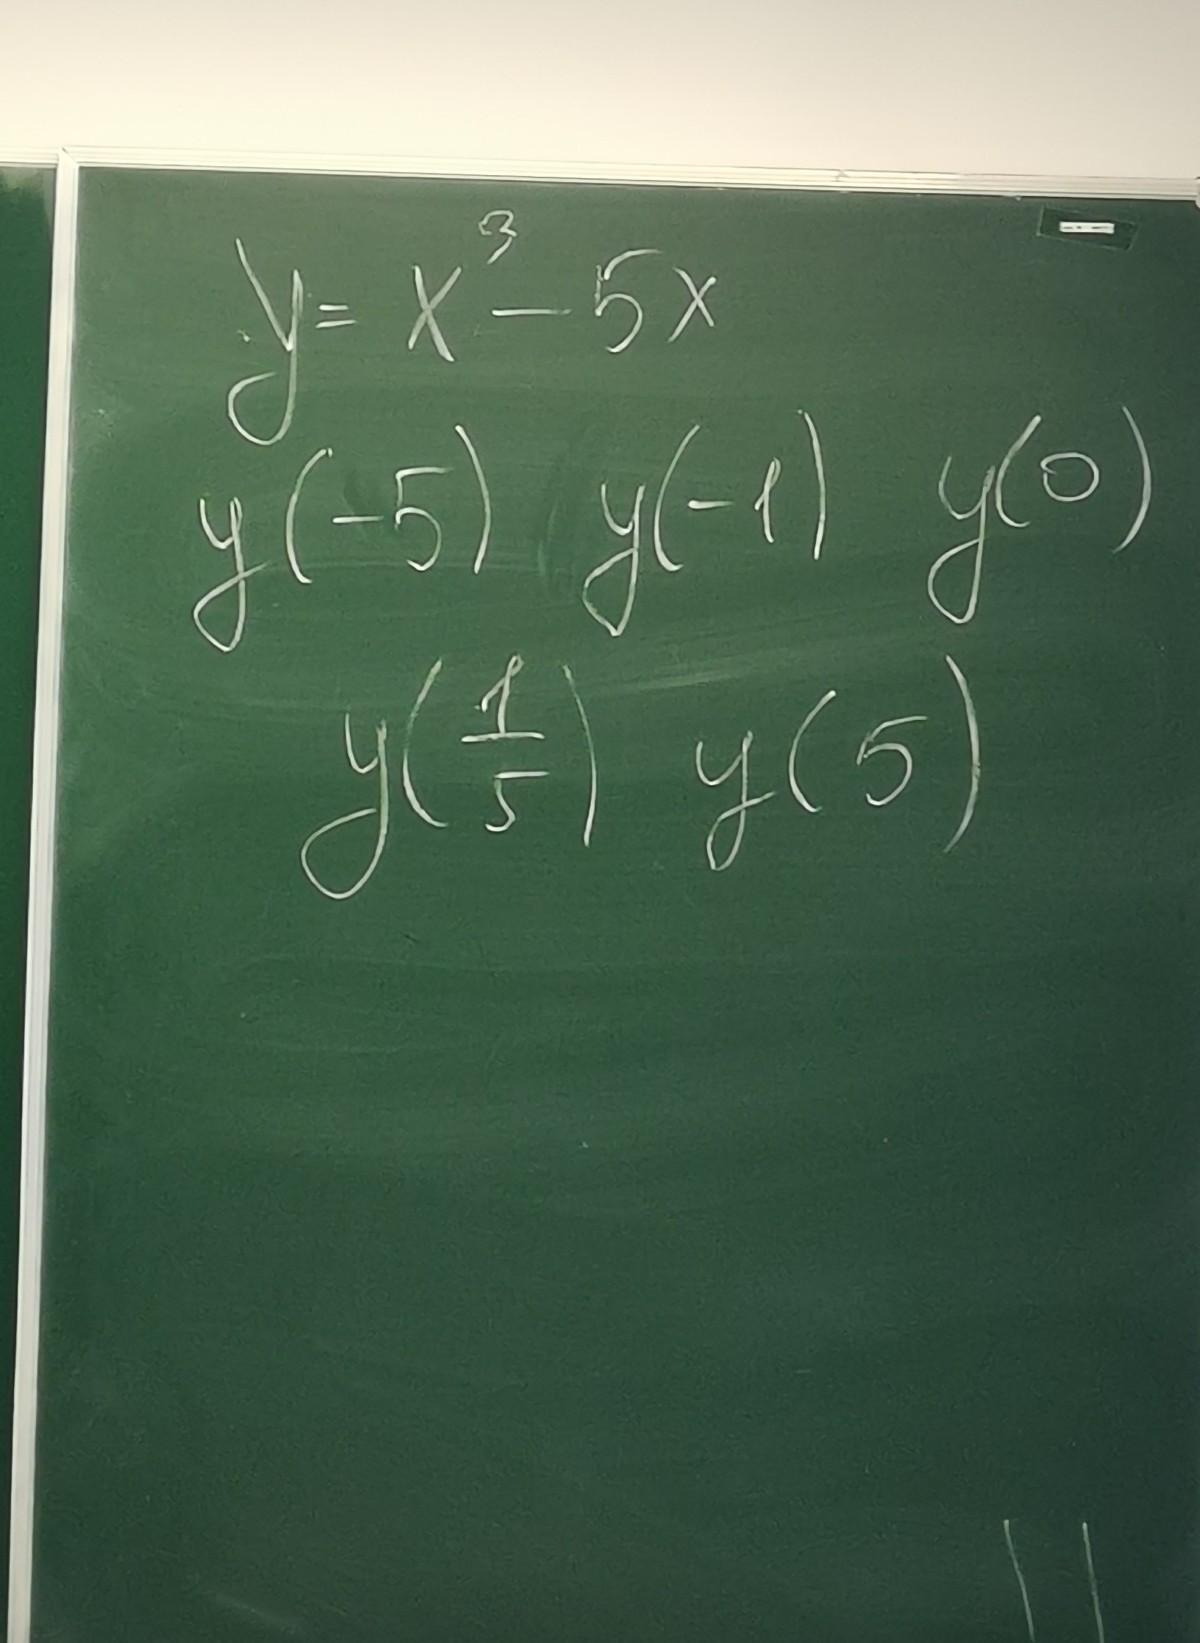 y = x³ - 5x
y(-5) y(-1) y(0)
y(1/5) y(5)